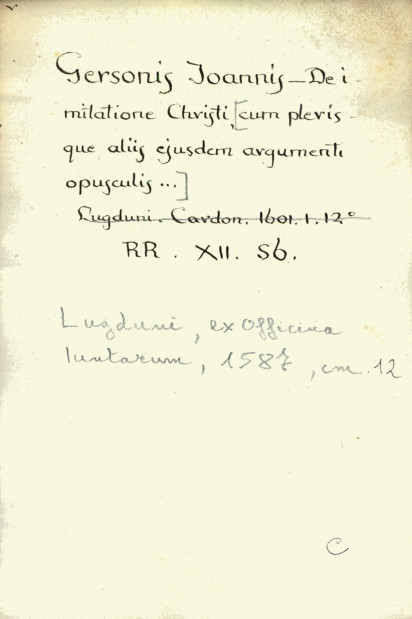 Gersonis Joannis — De i-
mitatione Christi, [cum pleris-
que aliis ejusdem argumenti
opusculis ...]
Lugduni. Cardon. 1601. 1. 12°
RR. XII. 56.
Lugduni, ex Officina
Iuntarum, 1587, cm. 12
C